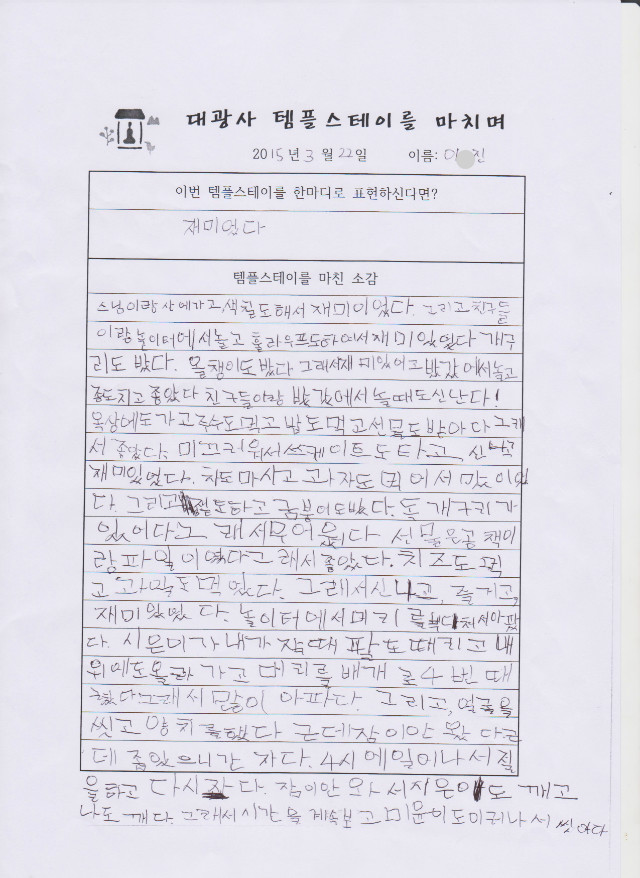 대광사 템플스테이를 마치며
2015년 3월 22일 이름: 이 진
이번 템플스테이를 한마디로 표현하신다면?
재미있다
템플스테이를 마친 소감
스님이랑 산에가고, 색칠도해서 재미이었다. 그리고 친구들
이랑 놀이터에서놀고 훌라우프도하여서재미있었다 개구
리도 봤다. 올챙이도봤다 그래서재미있어고 밨값에서놀고
종도치고 좋았다 친구들이랑 밨값에서 놀때도신난다!
옥상에도가고 국수도먹고 밥도먹고선물도받아다 그래
서 좋았다. 미끄러워서쓰케이트도타고, 신났고
재미있었다. 차도마시고 과자도 먹어서 맜이있
다. 그리고 절도하고 굼붕이도밨다. 독개구리가
있어다 그래서무어웠다 선물은공책이
랑파일이였다그래서좋았다. 치즈도먹
고 과일도먹었다. 그래서신나고, 즐기고,
재미있었다. 놀이터에서머리를 다처서아팠
다. 시은이가내가 잘때 팔도때리고내
위에도올라가고 머리를배개로4번때
렸다그래서많이아파다. 그리고, 얼굴을
씻고양치를했다 근데잠이안왔다근
데좀있으니간자다. 4시에일어나서절
을하고 다시잔다. 잠이안와서시은이도깨고
나도깨다. 그래서시간을계속보고미윤이도이러나서